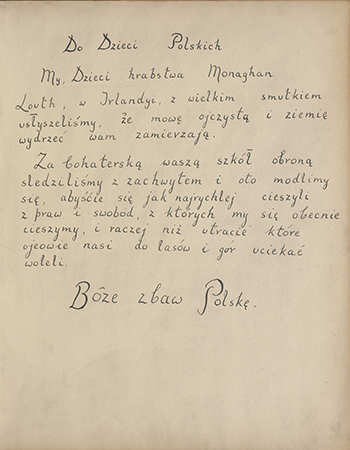 Do Dzieci Polskich
My, Dzieci hrabstwa Monaghan
Louth, w Irlandyi, z wielkim smutkiem
usłyszeliśmy, że mowę ojczystą i ziemię
wydrzeć wam zamierzają.
Za bohaterską waszą szkół obroną
śledziliśmy z zachwytem i oto modlimy
się, abyście się jak najrychlej cieszyli
z praw i swobód, z których my się obecnie
cieszymy, i raczej niż utracić które
ojcowie nasi do lasów i gór uciekać
woleli.
Bôże zbaw Polskę.